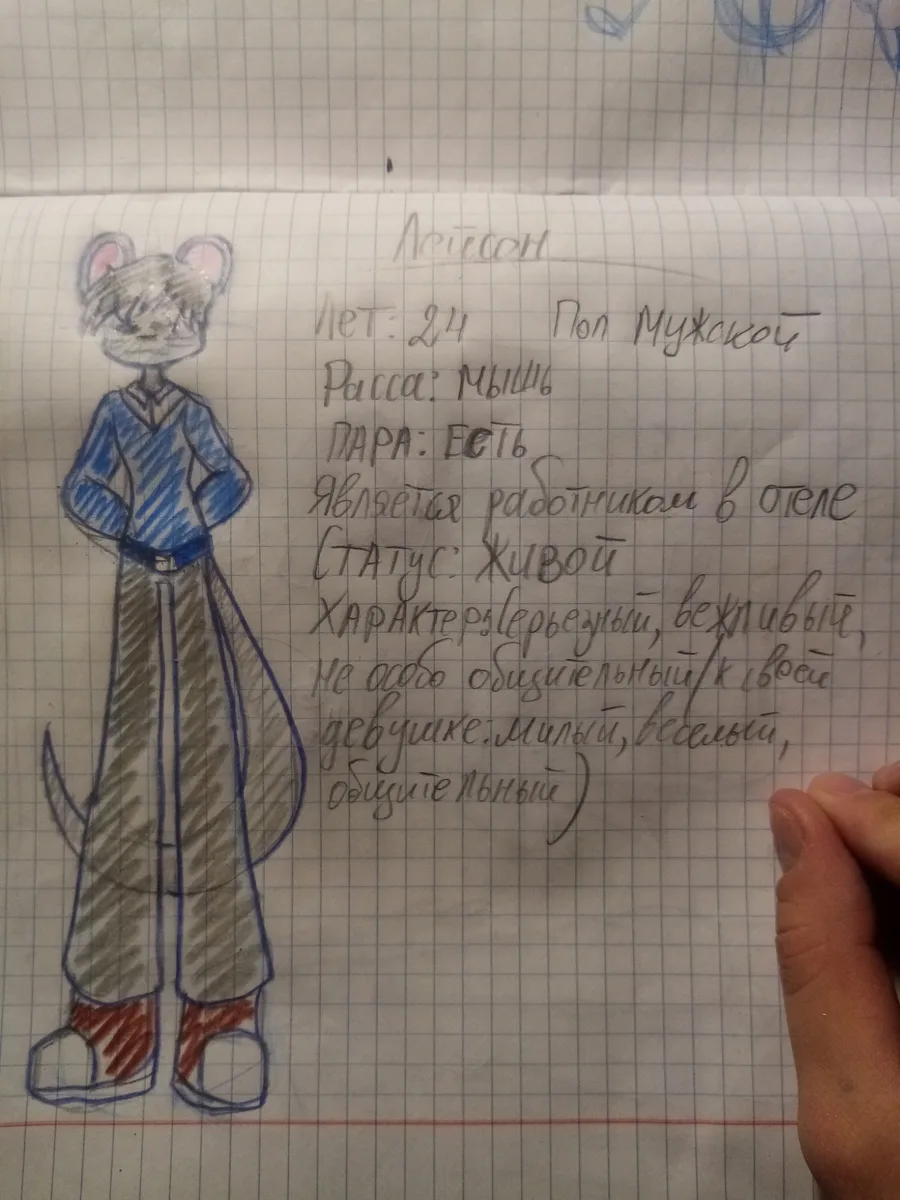 Лейсон
Лет: 24 Пол Мужской
Расса: мышь
ПАРА: ЕСТЬ
Является работником в отеле
Статус: Живой
Характер: Серьезный, вежливый,
не особо общительный (к своей
девушке: милый, веселый,
общительный)